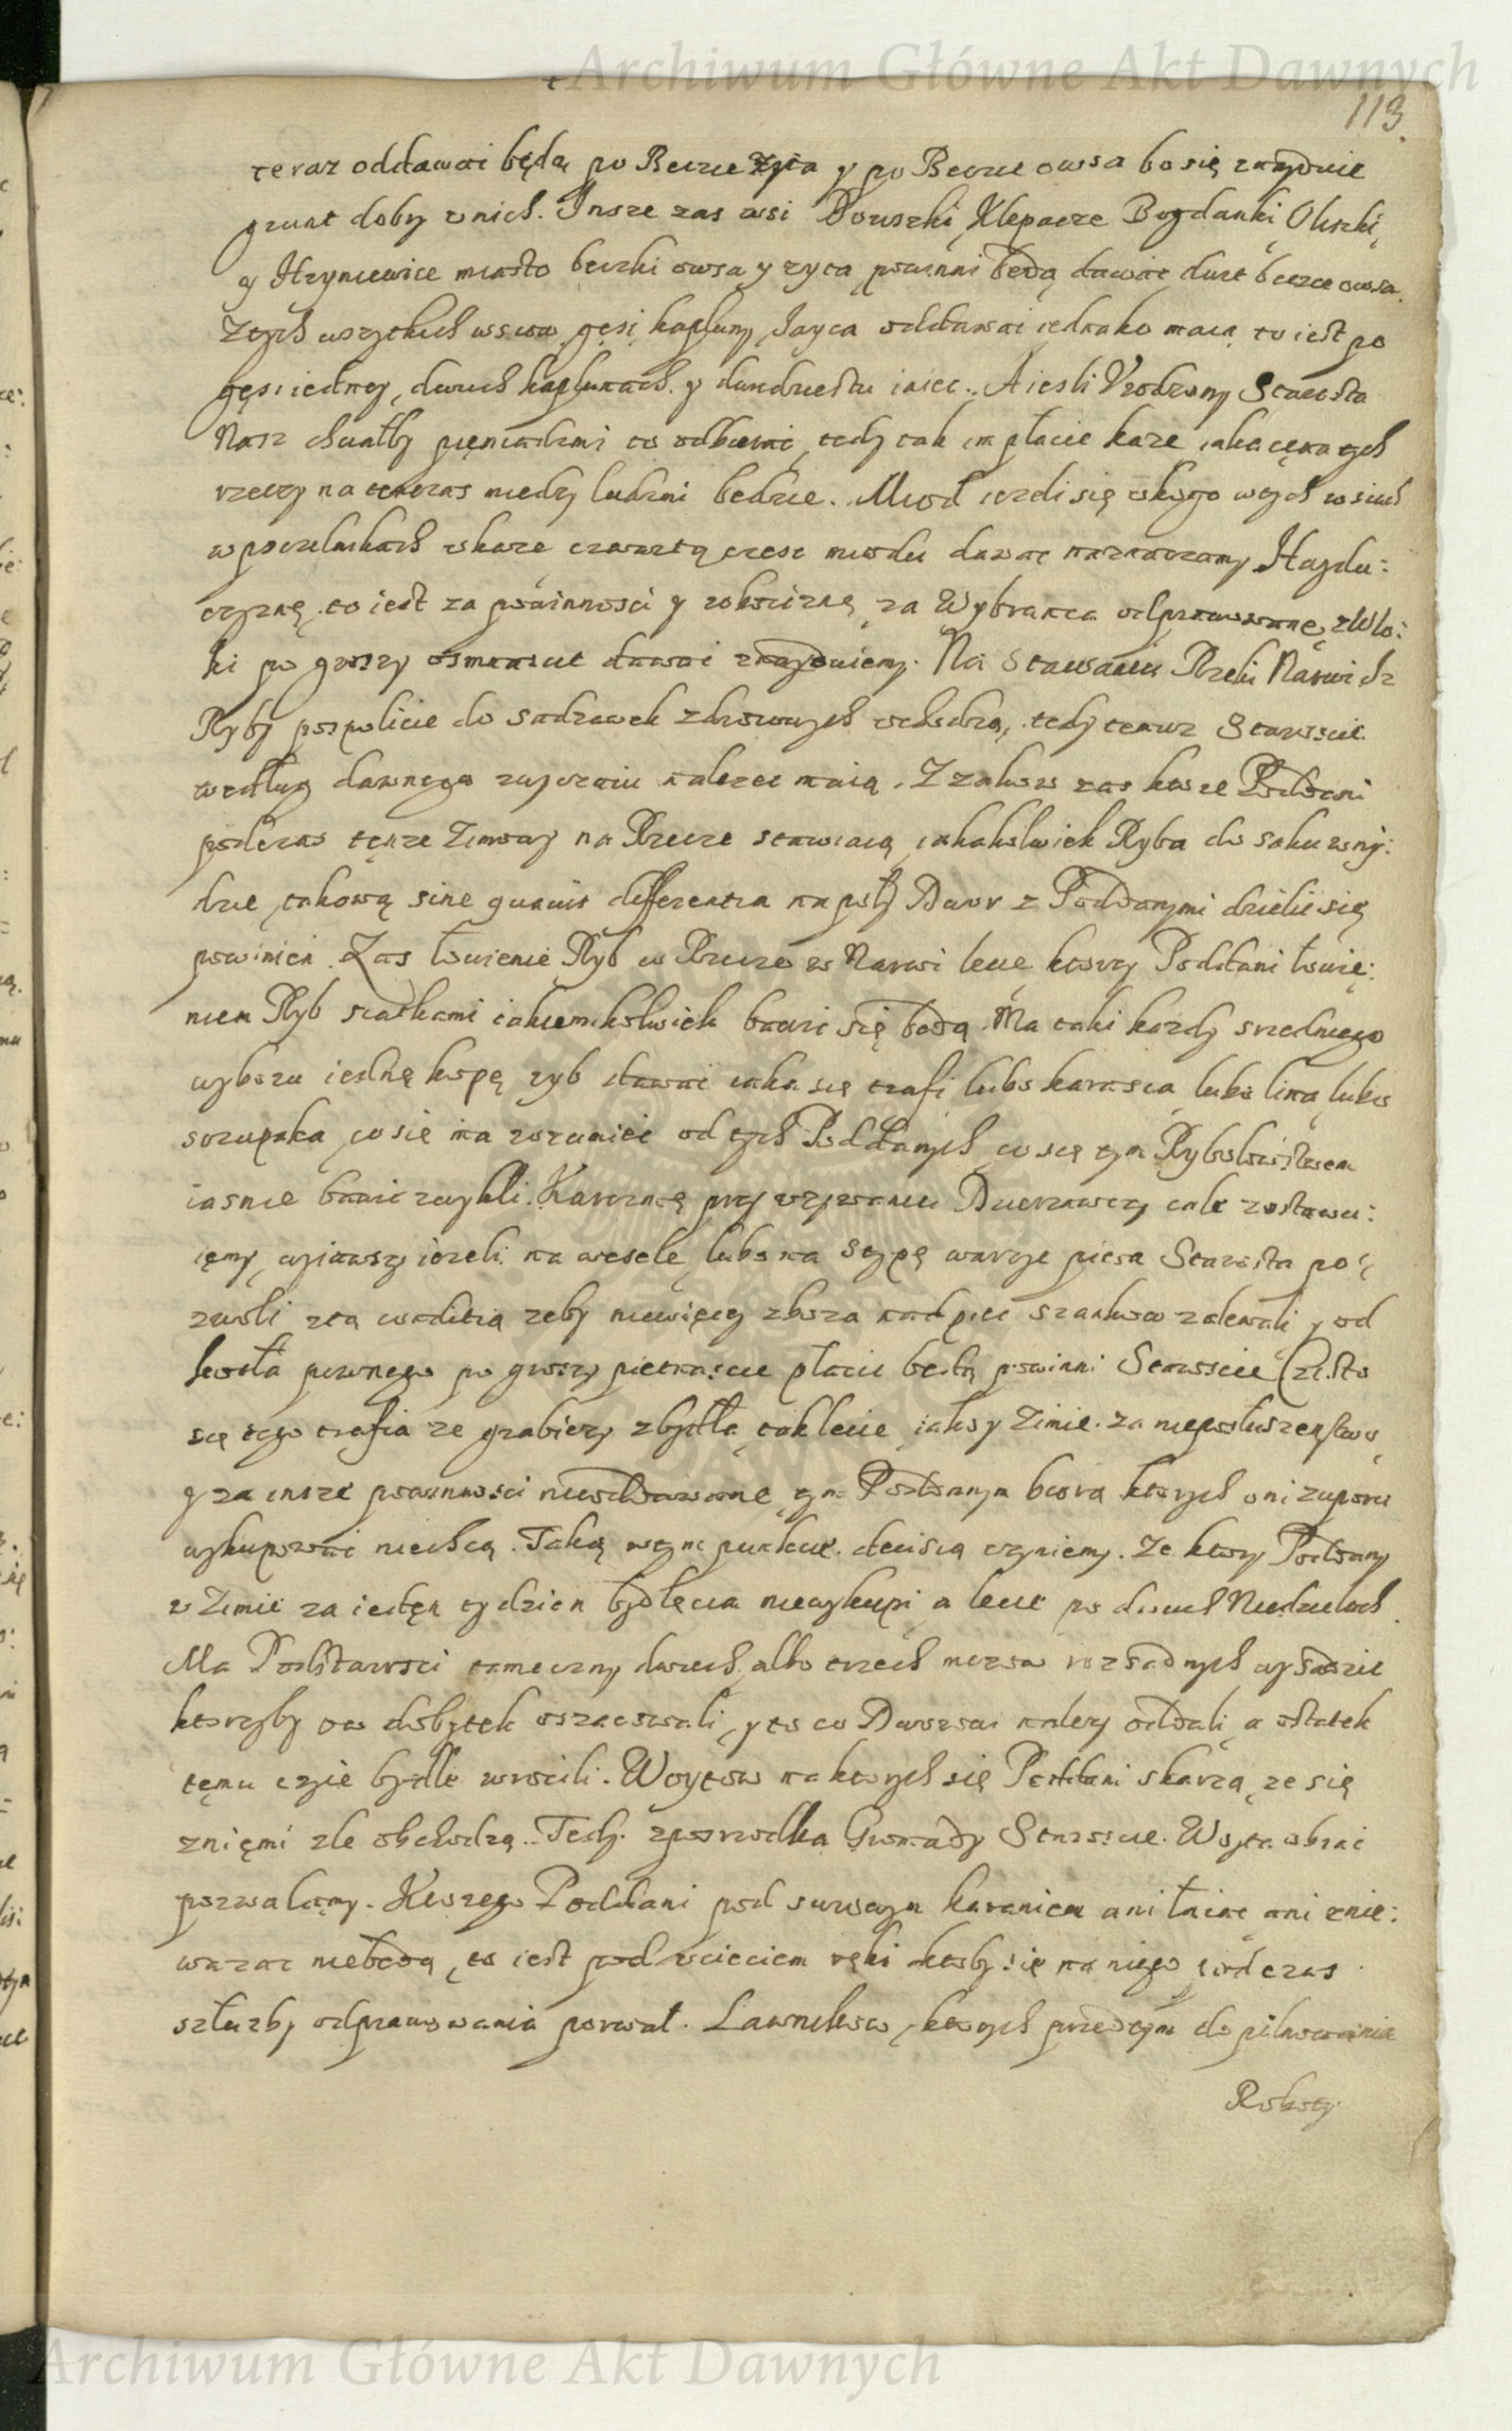 Archiwum Główne Akt Dawnych
113.
teraz oddawai będą po Beczce Zyta y po Beczce owsa bo się znayduie
grunt dobry w nich. Insze zas wsi Doyszki Klepacze Bogdanki Oliszki,
y Hryniewice miasto beczki owsa y zyta powinni będą dawac dwie beczce owsa.
Z tych wszytkich wsiow gęsi kapłuny Jayca oddawai jednako maią to iest po
gęsi iedney, dwuch kapłunach y dwudziestu iaiec. A iesli Vrodzony Starosta
Nasz chciałby pieniadzmi to odbierac, tedy tak im płacic kaze iaka cęna tych
rzeczy na ten czas miedzy ludzmi bedzie. Miod iezeli się u kogo w tych wsiach
w pszczelnikach okaze czwartą czesc miodu dawac naznaczamy Haydu:
czyznę to iest za powinnosci y robociznę za Wybranca odprawowanę z Wło:
ki po groszy osmnascie dawai znayduiemy. Na Stawaniu Rzeki Narwi iz
Ryby pospolicie do sadzawek zdrowych wchodzą, tedy teraz Staroscie
według dawnego zwyczaiu nalezec maią. Z zakow zas ktore Poddani
podczas tęnze Zimowy na Rzece stawiaią iakakolwiek Ryba do saku wniy:
dzie, takową sine quavis differentia na poły Dwor z Poddanymi dzielic się
powinien. Zas łowienie Ryb w Rzece w Narwi lecie ktorzy Poddani łowię:
niem Ryb siatkami iakiemikolwiek bawic się będą. Ma taki kazdy srzedniego
wyboru iednę kopę ryb dawac iaka się trafi lubo karasia lubo lina lubo
sczupaka, co się ma rozumiec od tych Poddanych co się tym Rybołowstwem
iasnie bawic zwykli. Karczmę przy uzywaniu Dzierzawcy cale zostawu:
ięmy, wyiawszy iezeli na wesele lubo na stypę warzyc piwa Starosta po:
zwoli z tą conditią zeby niewięcy zboza nad pięc szankow zalewali, y od
kotła pewnego po groszy pietnascie płacic będą powinni Staroscie Często
się tego trafia ze grabiezy z bydła tak lecie iako y Zimie za nieposłuszenstwo,
y za insze powinnosci nieoddawane tym Poddanym biorą ktorych oni zuporu
wykupowac niechcą. Taką w tym punkcie decisią czyniemy. Ze ktory Poddany
w Zimie za ieden tydzien bydlęcia niewykupi a lecie po dwuch Niedzielach.
Ma Podstarosci tameczny dwuch albo trzech męzow rozsadnych wysadzic
ktorzyby ow dobytek oszacowali, y to co Dworowi nalezy oddali a ostatek
tęmu czyie bydlę wrocili. Woytow na ktorych się Poddani skarzą, ze się
z nięmi zle obchodzą. Tedy zposrodka Gromady Staroscie Woyta obrac
pozwalamy. Ktorego Poddani pod surowym karaniem ani łaiac ani znie:
wazac niebedą, to iest pod ucieciem ręki ktoby się na niego podczas
słuzby odprawowania porwał. Ławnikow, ktorych przedtym do pilnowania
Roboty
Archiwum Główne Akt Dawnych